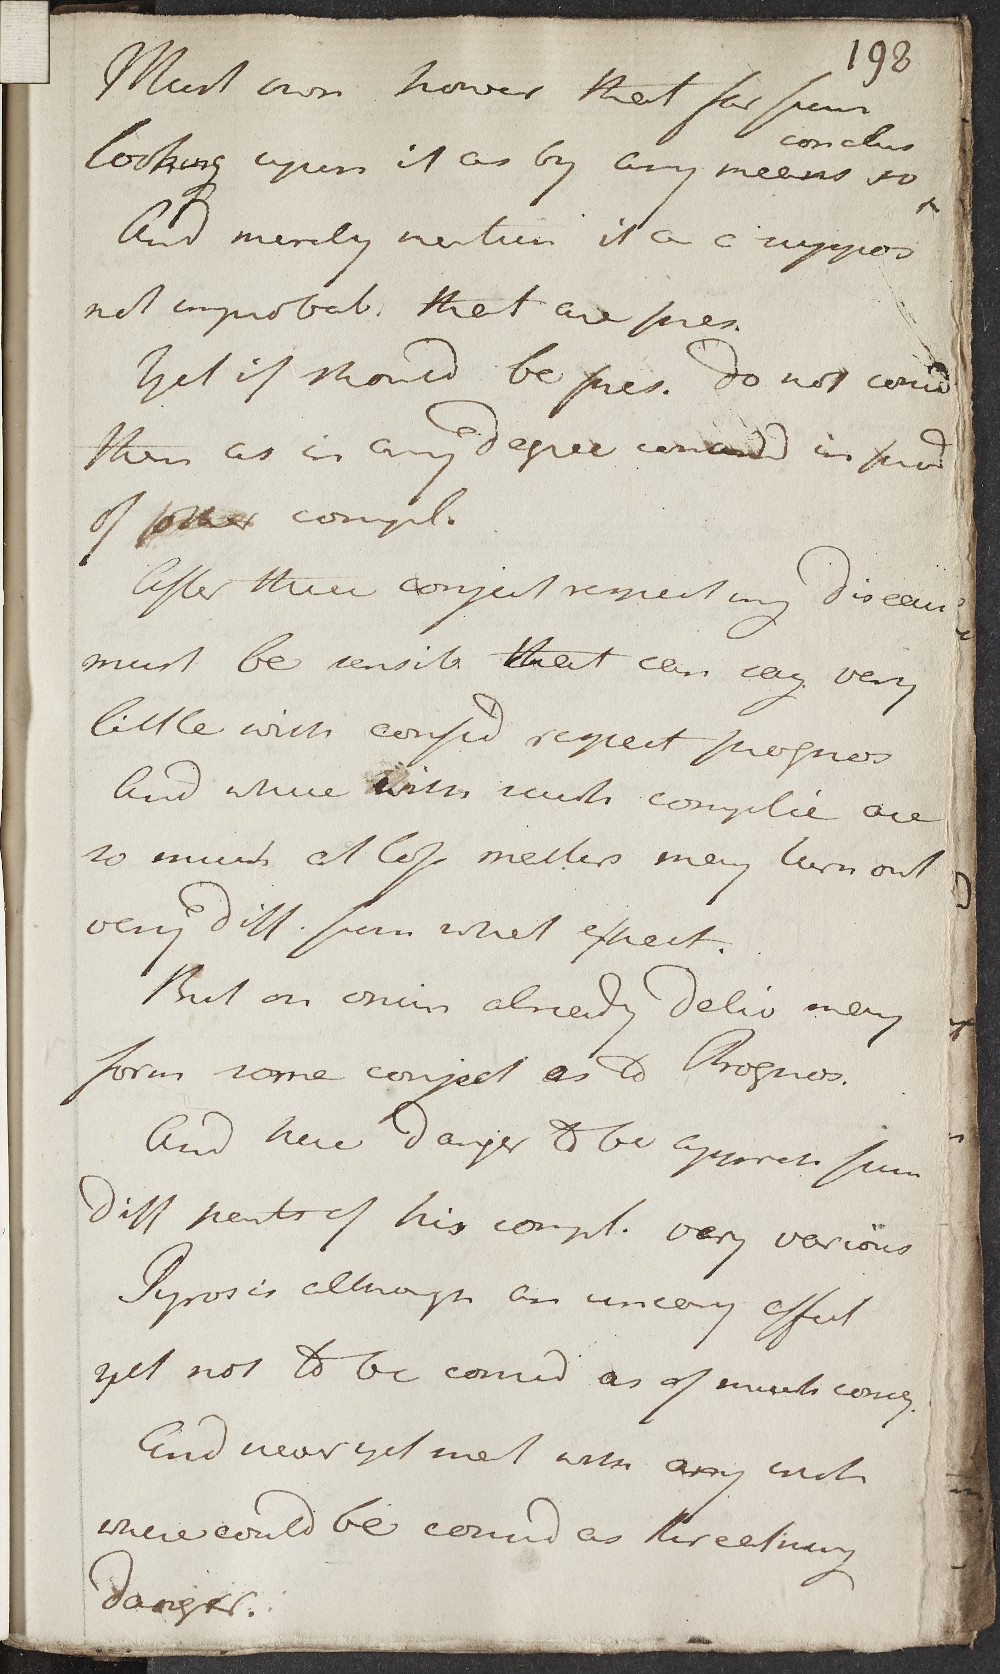 198
Must own howev that far from
conclus
looking upon it as by any means so
And merely mention it as a suppos
not improbab. that are pres.
Yet if should be pres. do not consid
them as in any degree concernd in prod
of other compl.
After these conject respecting Disease
must be sensib that can say very
little with confid respect prognos
And where with such complic are
so much at loss matters may turn out
very diff. from what expect.
But on opinion already deliv may
form some conject as to Prognos.
And here danger to be appreh from
diff parts of his compl. very various
Pyrosis although an uneasy affect
yet not to be consid as of much conseq.
And never yet met with any such
where could be consid as threatning
danger.